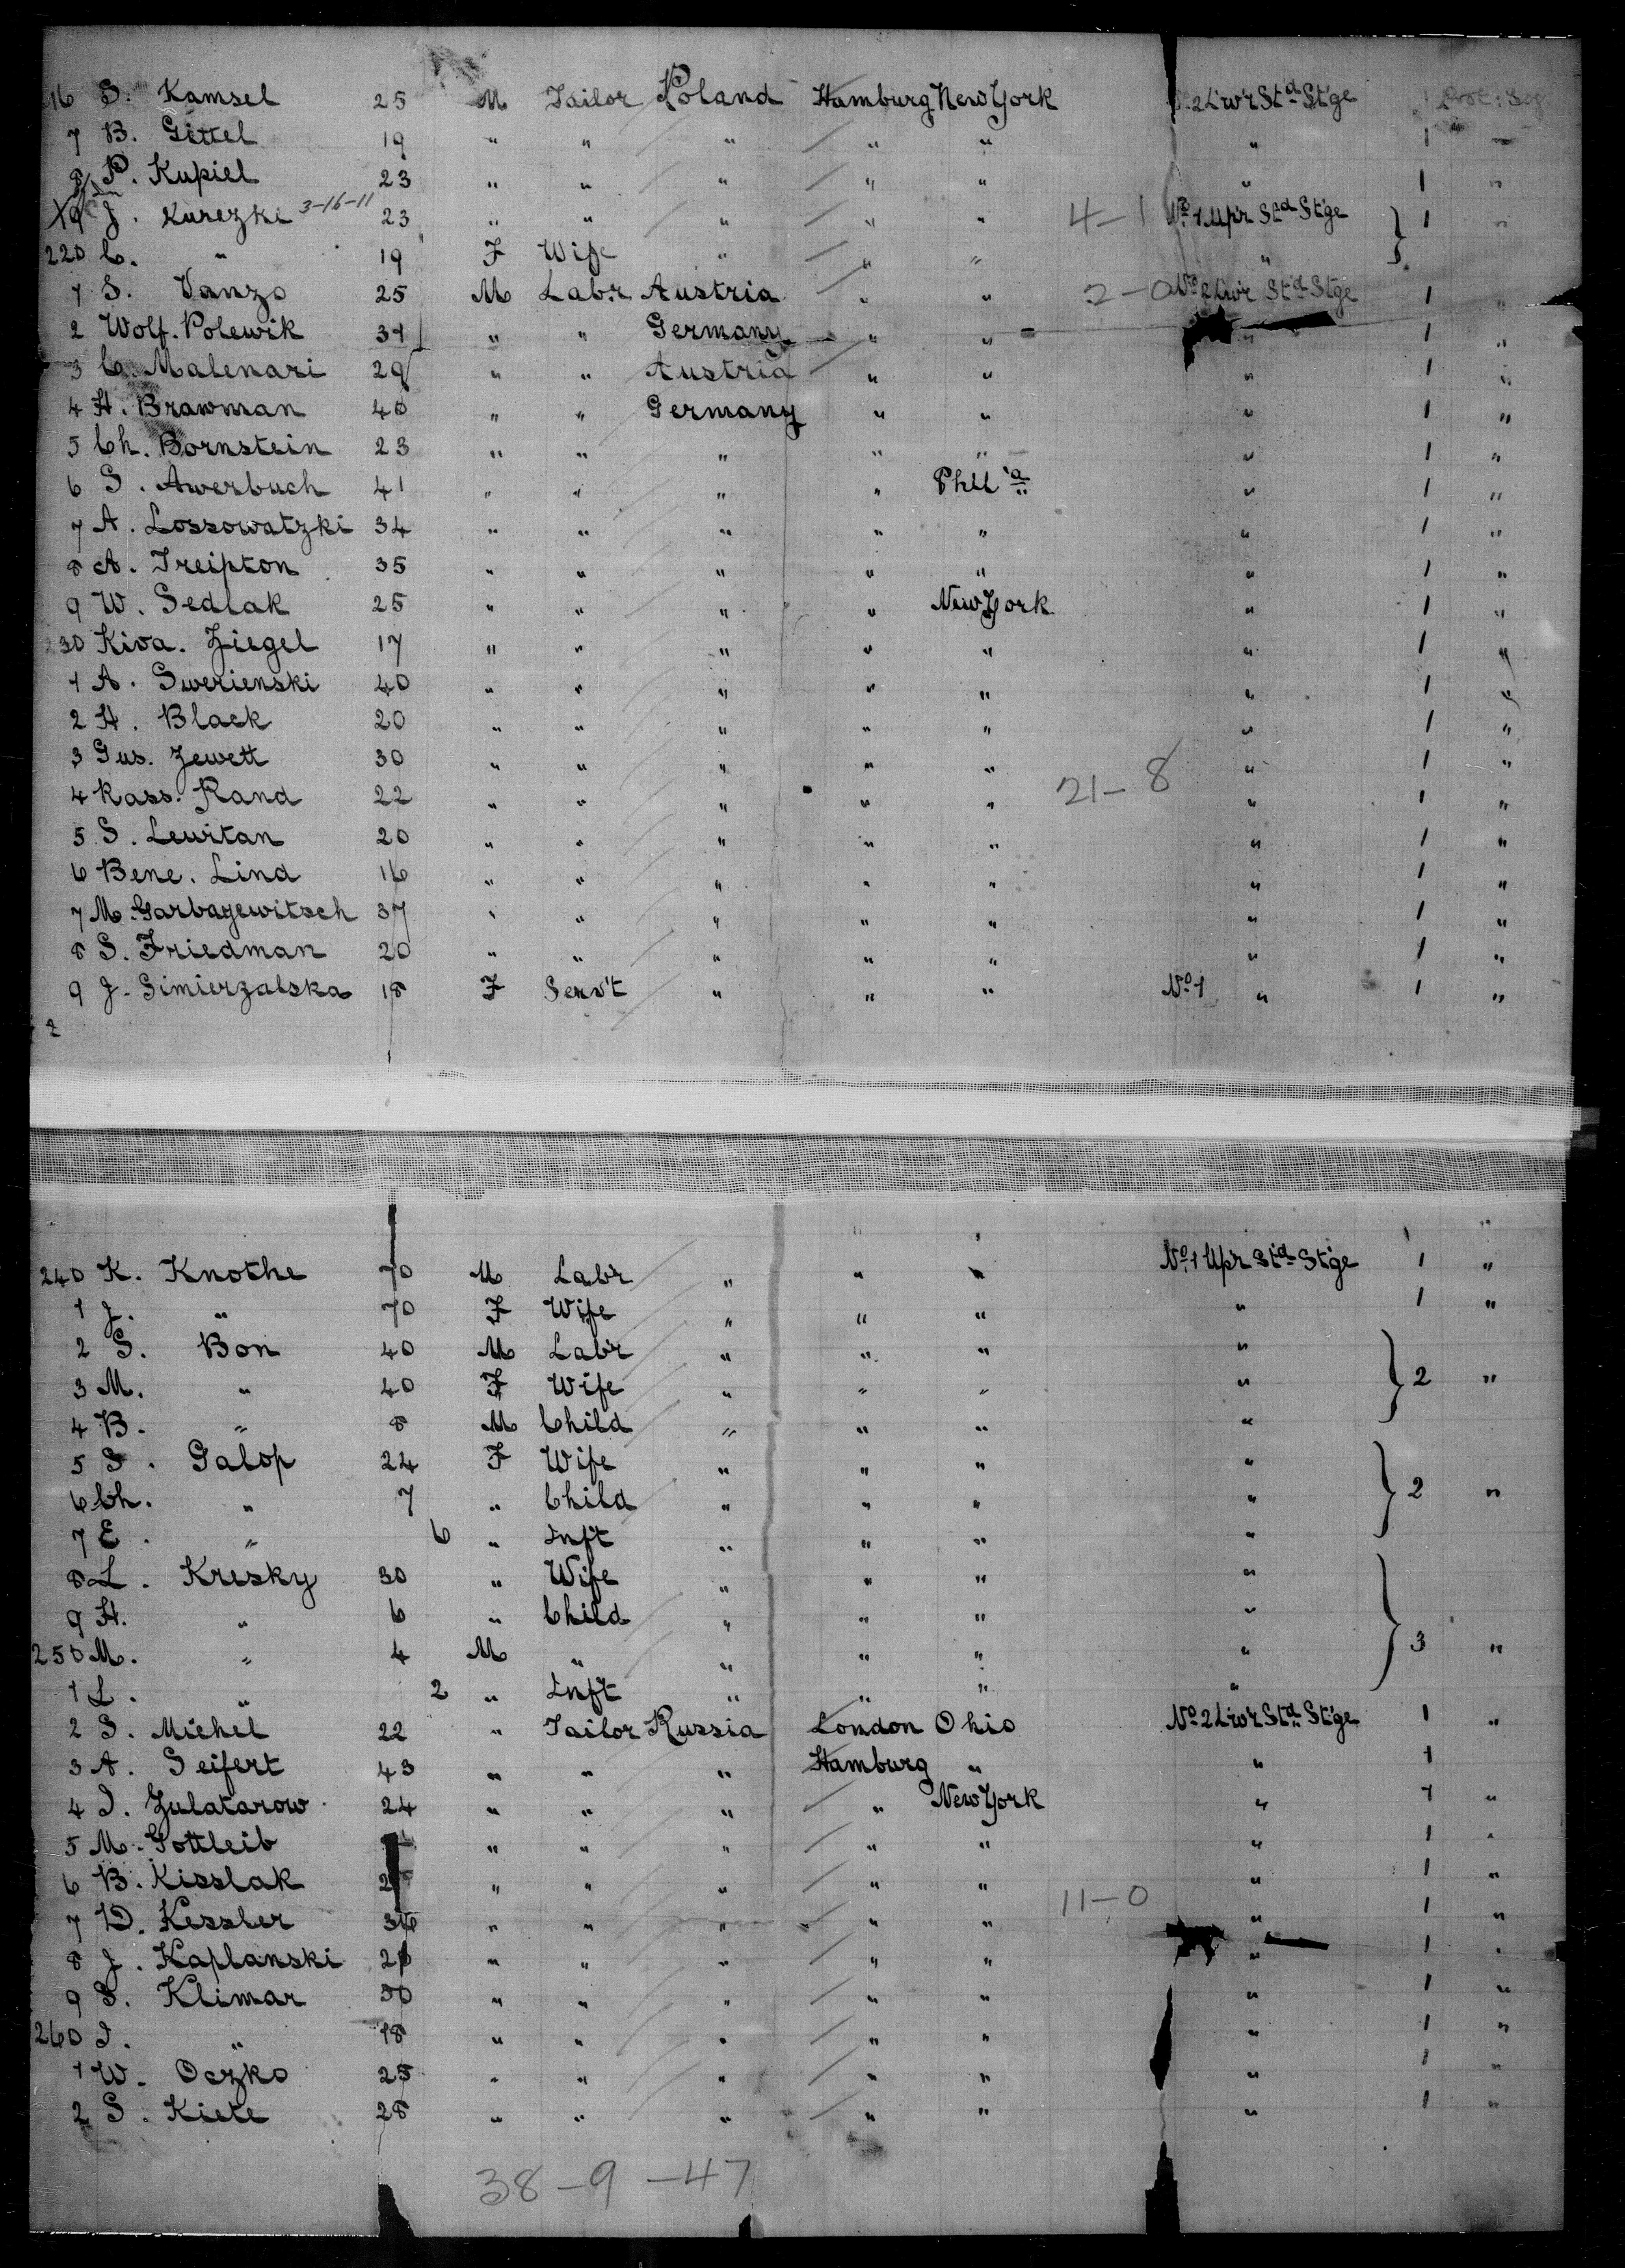 16 S. Kamsel 25 M Tailor Poland Hamburg New York No 2 Lw'r St'd St'ge 1 Prot: Seg
7 B. Gittel 19 " " " " " " 1 "
8 P. Kupiel 23 " " " " " " 1 "
X9 J. Kurezki 3-16-11 23 " " " " " 4-1 No 1 Upr St'd St'ge 1 "
220 C. " 19 F Wife " " " "
1 S. Vanzo 25 M Lab'r Austria " " 2-0 No 2 Lwr St'd St'ge 1 "
2 Wolf. Polewik 31 " " Germany " " " 1 "
3 C. Malenari 29 " " Austria " " " 1 "
4 H. Brawman 40 " " Germany " " " 1 "
5 Ch. Bornstein 23 " " " " " " 1 "
6 S. Awerbuch 41 " " " " Phil'a " 1 "
7 A. Lossowatzki 34 " " " " " " 1 "
8 A. Treipton 35 " " " " " " 1 "
9 W. Sedlak 25 " " " " New York " 1 "
230 Kiva. Ziegel 17 " " " " " " 1 "
1 A. Swerienski 40 " " " " " " 1 "
2 H. Black 20 " " " " " " 1 "
3 Gus. Jewett 30 " " " " " " 1 "
4 Kass. Rand 22 " " " " " 21-8 " 1 "
5 S. Lewitan 20 " " " " " " 1 "
6 Bene. Lind 16 " " " " " " 1 "
7 M. Garbayewitsch 37 " " " " " " 1 "
8 S. Friedman 20 " " " " " " 1 "
9 J. Simierzalska 18 F Serv't " " " No 1 " 1 "
2
240 K. Knothe 70 M Labr " " " No 1 Upr St'd St'ge 1 "
1 J. " 70 F Wife " " " " 1 "
2 S. Bon 40 M Lab'r " " " "
3 M. " 40 F Wife " " " " 2 "
4 B. " 8 M Child " " " "
5 S. Galop 24 F Wife " " " "
6 Ch. " 7 " Child " " " " 2 "
7 E. " 6 " Inft " " " "
8 L. Kresky 30 " Wife " " " "
9 H. " 6 " Child " " " "
250 M. " 4 M " " " " " 3 "
1 L. " 2 " Inft " " " "
2 S. Michel 22 " Tailor Russia London Ohio No 2 Lwr St'd St'ge 1 "
3 A. Seifert 43 " " " Hamburg " " 1
4 I. Zulatarow 24 " " " " New York " 1 "
5 M. Gottleib " " " " " " 1 "
6 B. Kisslak " " " " " " 1 "
7 D. Kessler " " " " " 11-0 " 1 "
8 J. Kaplanski " " " " " " 1 "
9 S. Klimar 50 " " " " " " 1 "
260 I. " 18 " " " " " " 1 "
1 W. Oczko 25 " " " " " " 1 "
2 S. Kiete 28 " " " " " " 1 "
38-9-47